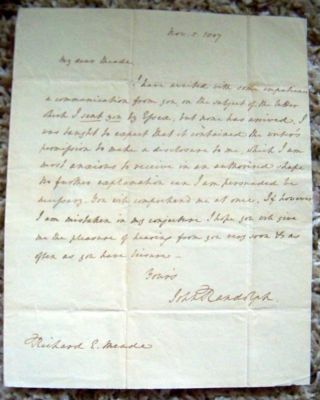 Nov. 5. 1807
My dear Meade.
I have waited with some impatience
a communication from you on the subject of the letter
which I sent you by Essex, but none has arrived. I
was taught to expect that it contained the writer's
permission to make a disclosure to me which I am
most anxious to receive in an authorised shape
No further explanation can I am persuaded be
necessary. You will comprehend me at once. If however
I am mistaken in my conjecture I hope you will give
me the pleasure of hearing from you very soon & as
often as you have leisure.
Yours
John Randolph
Richard E. Meade